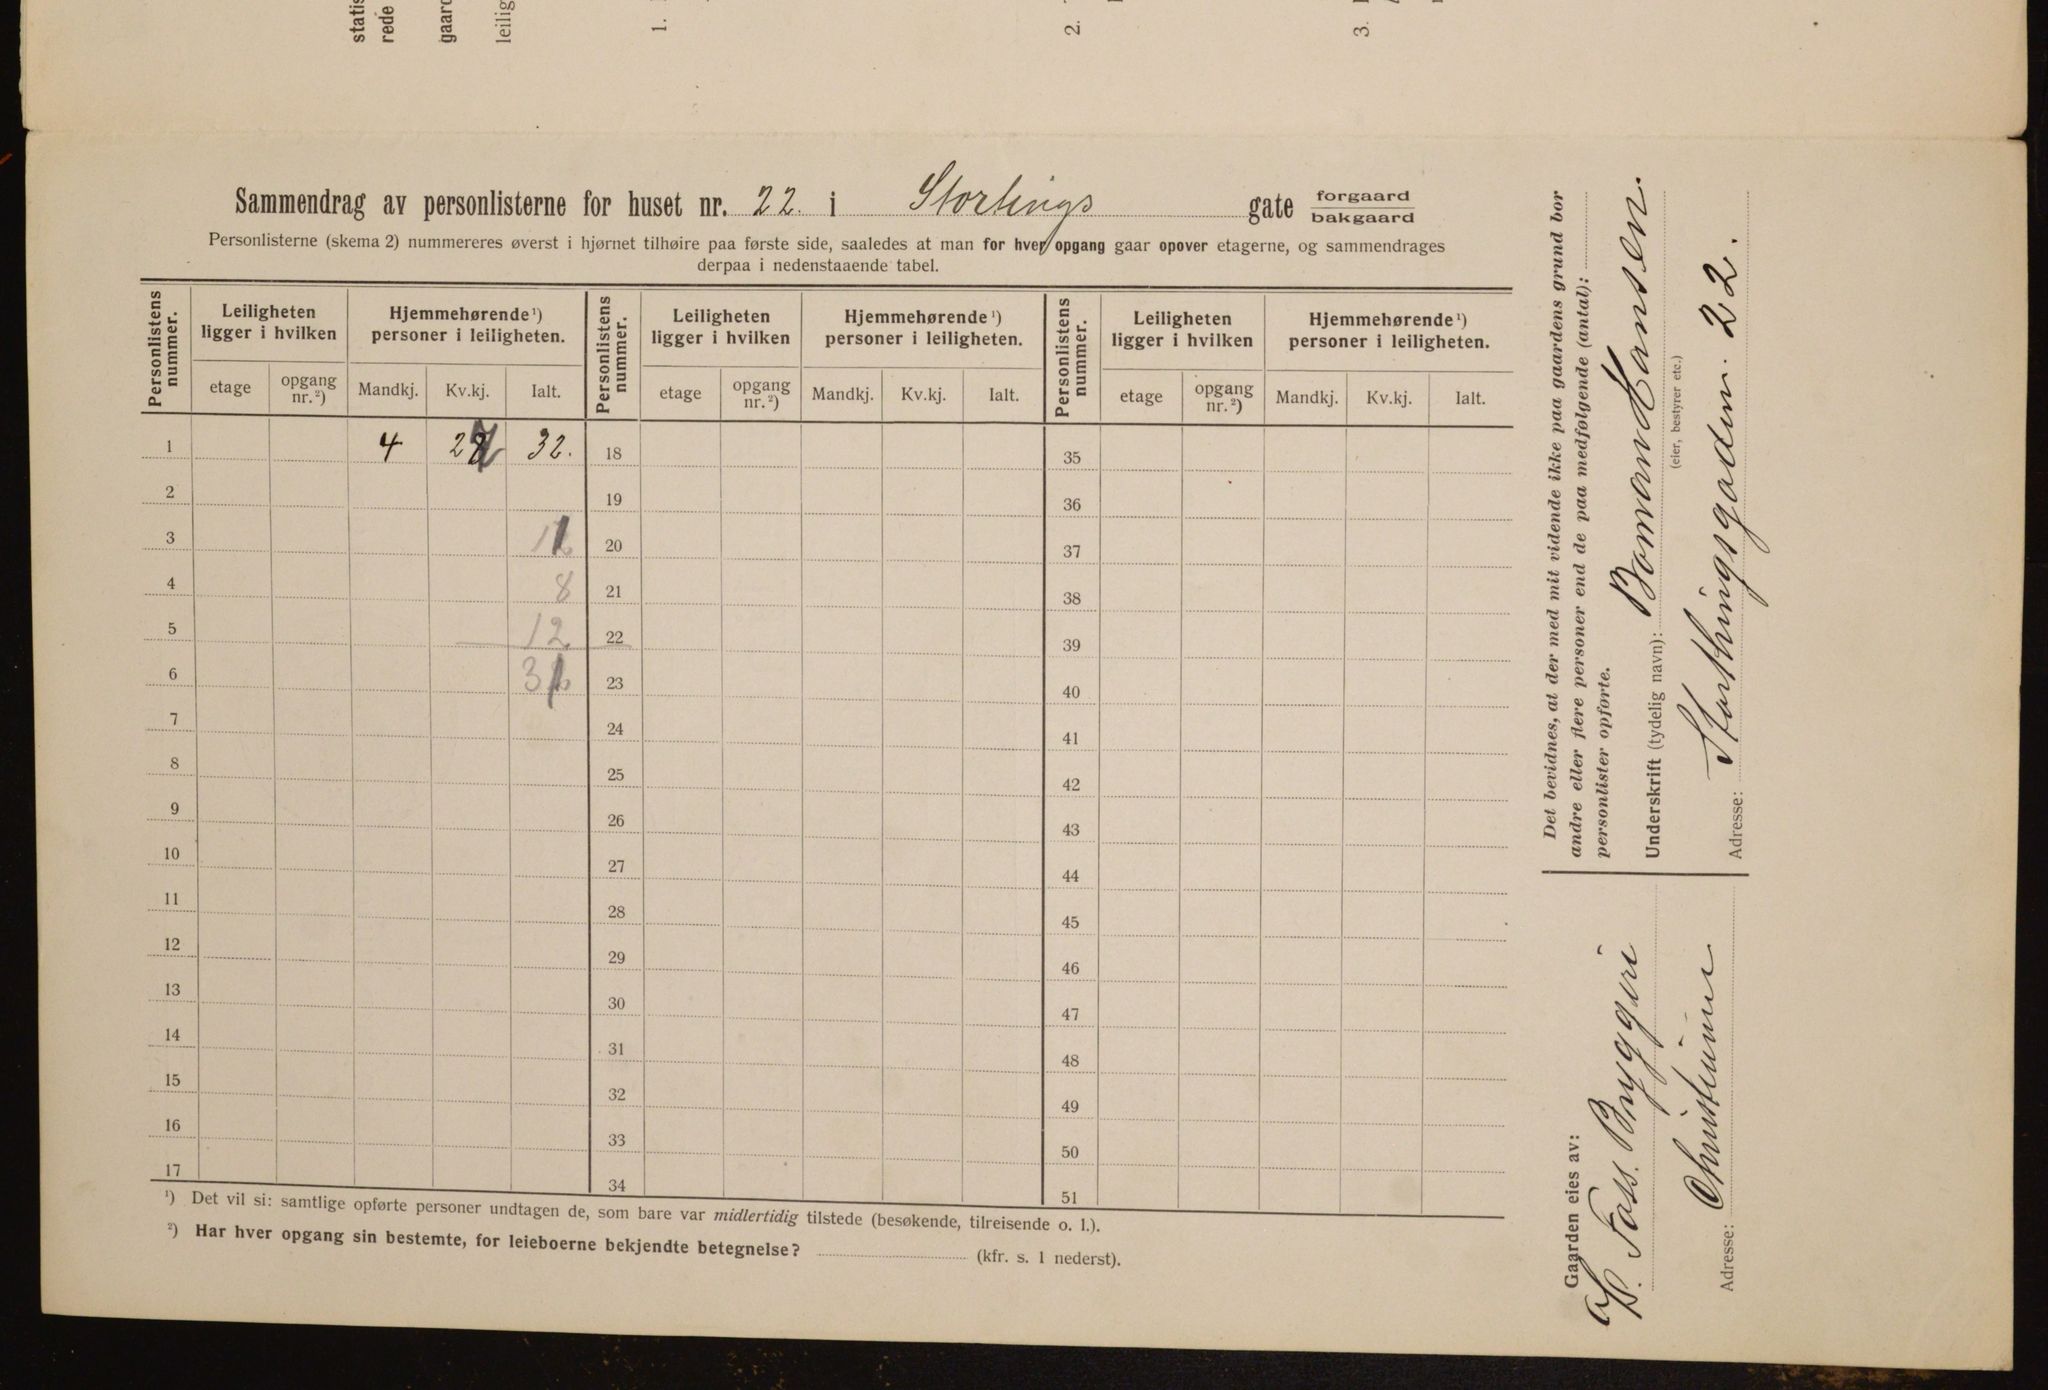 statis
rede
gaard
leilig
1.
2.
3.
Sammendrag av personlisterne for huset nr. 22. i Stortings gate forgaard bakgaard
Personlisterne (skema 2) nummereres øverst i hjørnet tilhøire paa første side, saaledes at man for hver opgang gaar opover etagerne, og sammendrages
derpaa i nedenstaaende tabel.
Personlistens nummer. Leiligheten ligger i hvilken Hjemmehørende ¹) personer i leiligheten. Personlistens nummer. Leiligheten ligger i hvilken Hjemmehørende ¹) personer i leiligheten. Personlistens nummer. Leiligheten ligger i hvilken Hjemmehørende ¹) personer i leiligheten.
etage opgang nr.²) Mandkj. Kv.kj. Ialt. etage opgang nr.²) Mandkj. Kv.kj. Ialt. etage opgang nr.²) Mandkj. Kv.kj. Ialt.
1 4 32. 18 35
2 19 36
3 20 37
4 8 21 38
5 12 22 39
6 23 40
7 24 41
8 25 42
9 26 43
10 27 44
11 28 45
12 29 46
13 30 47
14 31 48
15 32 49
16 33 50
17 34 51
¹) Det vil si: samtlige opførte personer undtagen de, som bare var midlertidig tilstede (besøkende, tilreisende o. l.).
²) Har hver opgang sin bestemte, for leieboerne bekjendte betegnelse? (kfr. s. 1 nederst).
Det bevidnes, at der med mit vidende ikke paa gaardens grund bor
andre eller flere personer end de paa medfølgende (antal):
personlister opførte.
Underskrift (tydelig navn): Bomann Hansen.
(eier, bestyrer etc.)
Adresse: Storthingsgaden. 22.
Gaarden eies av:
Foss. Bryggeri
Adresse: Christiania